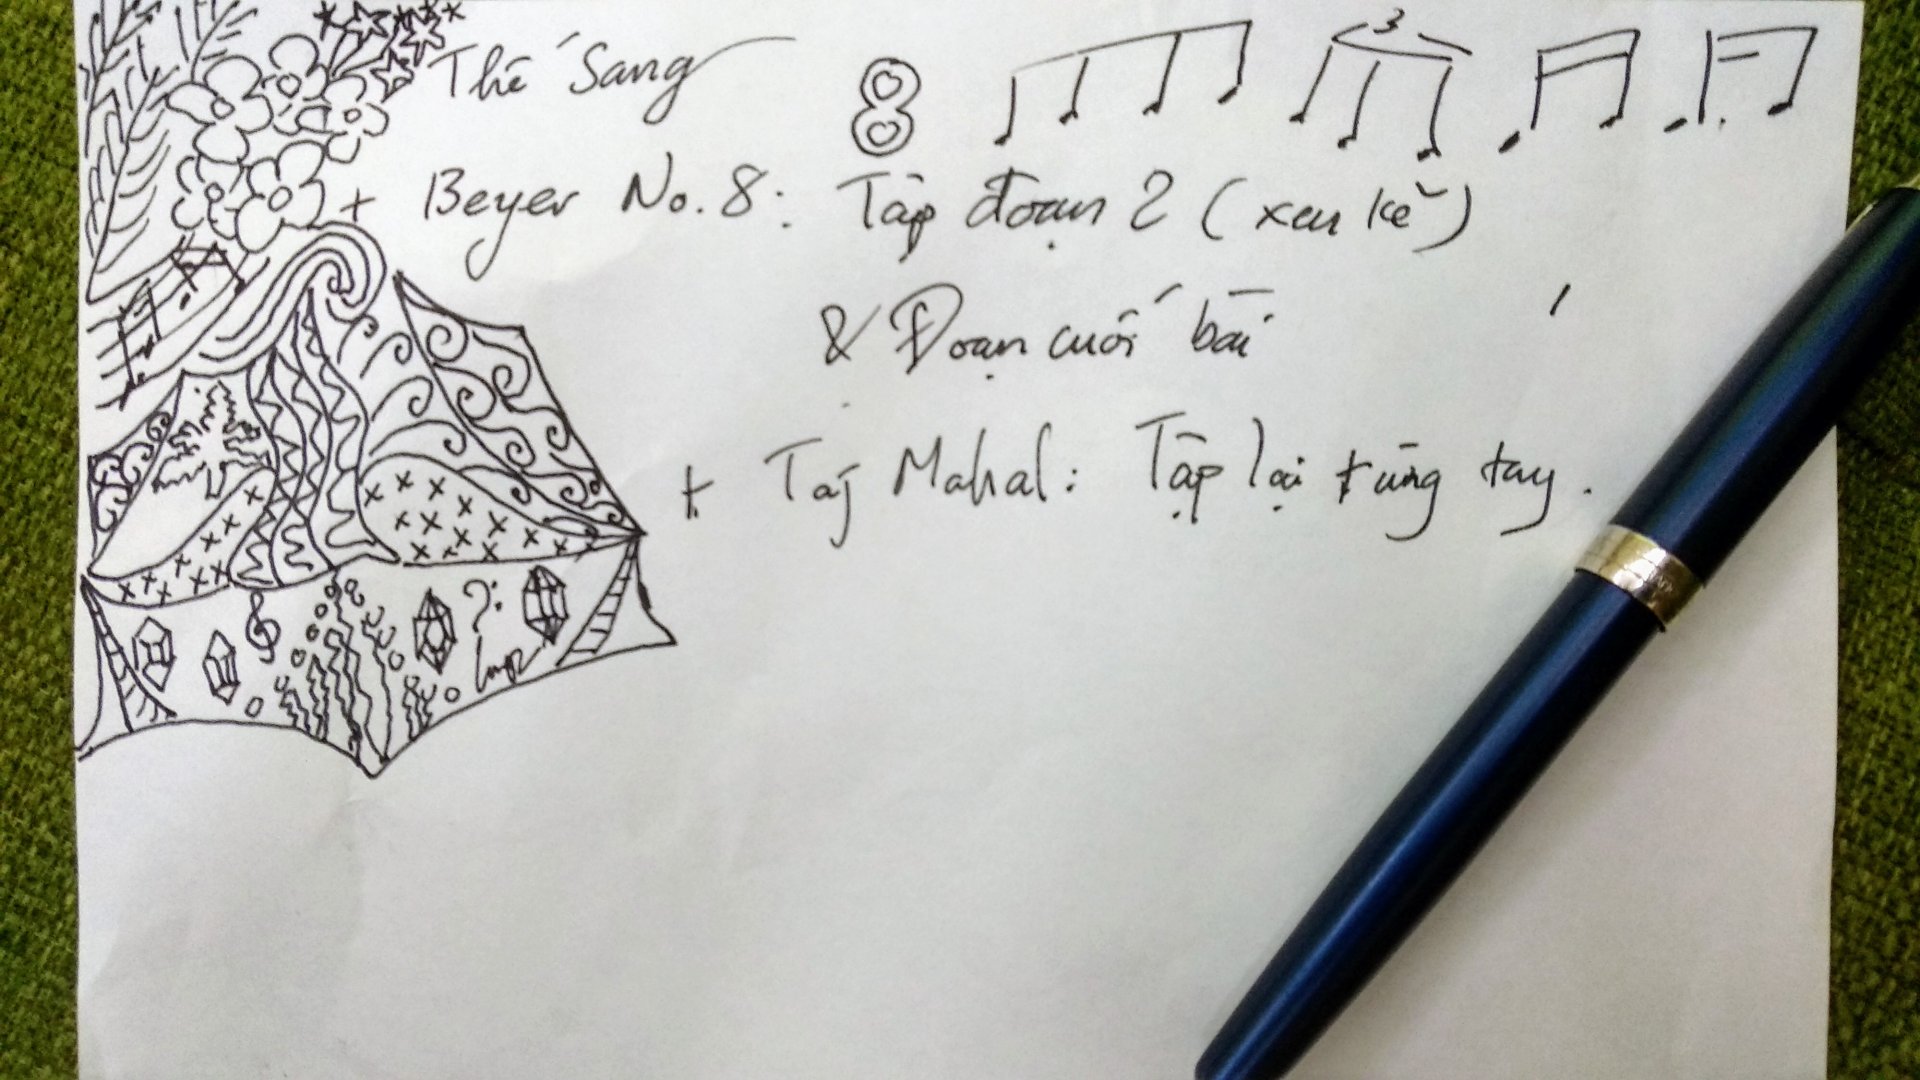 Thế Sang 8 3
+ Beyer No. 8: Tập đoạn 2 (xen kẽ)
& Đoạn cuối bài
+ Taj Mahal: Tập lại từng tay.